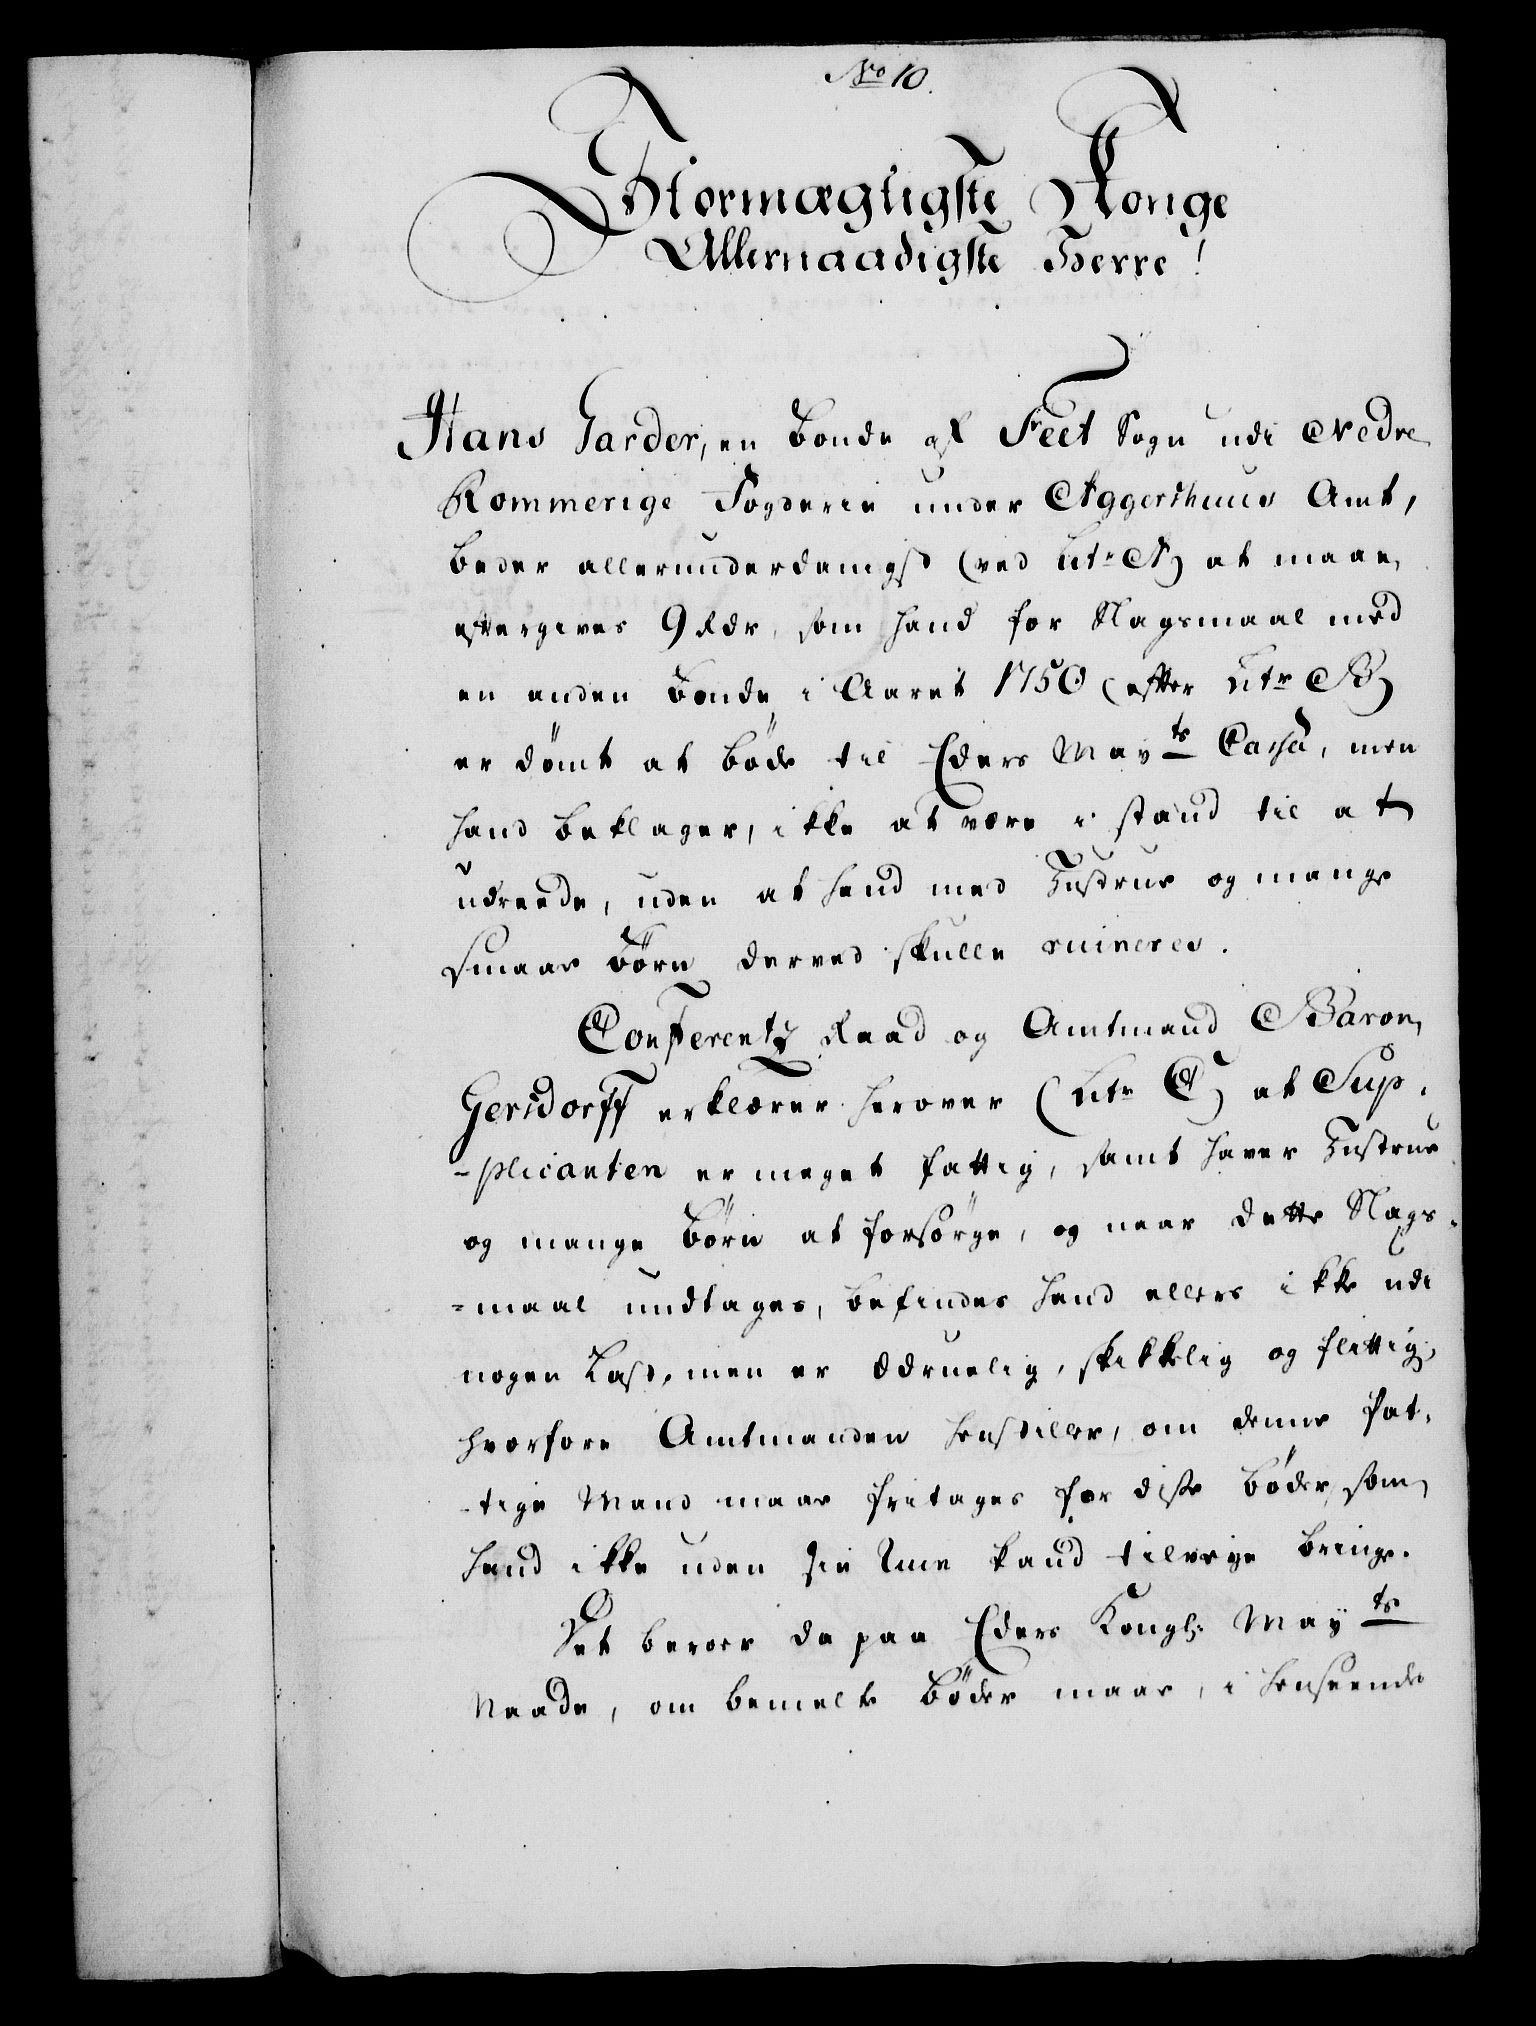 No 10.
Stormægtigste Konge
Allernaadigste Herre!
Hans Garder, en Bonde af Feet Sogn udi Nedre
Rommerige Fogderie under Aggershuus Amt,
beder allerunderdanigst (ved Litr A) at maae
eftergives 9 Rdr, som hand for Slagsmaal med
en anden Bonde i Aaret 1750 (efter Litr B)
er dömt at böde til Eders Mayts Cassa, men
hand beklager, ikke at være i stand til at
udreede, uden at hand med Hustrue og mange
smaae Börn derved skulle ruineres.
Conferentz Raad og Amtmand Baron
Gersdorff erklærer herover (Litr C) at Sup-
-plicanten er meget fattig, samt haver Hustrue
og mange Börn at forsörge, og naar dette Slags-
=maal undtages, befindes hand ellers ikke udi
nogen Last, men er ædruelig, skikkelig og flittig,
hvorfore Amtmanden henstiller, om denne fat-
-tige Mand maae fritages for disse böder, som
hand ikke uden sin Ruin kand tilveye bringe.
Det beroer da paa Eders Kongl: Mayts
Naade, om bemelte Böder maae, i henseende